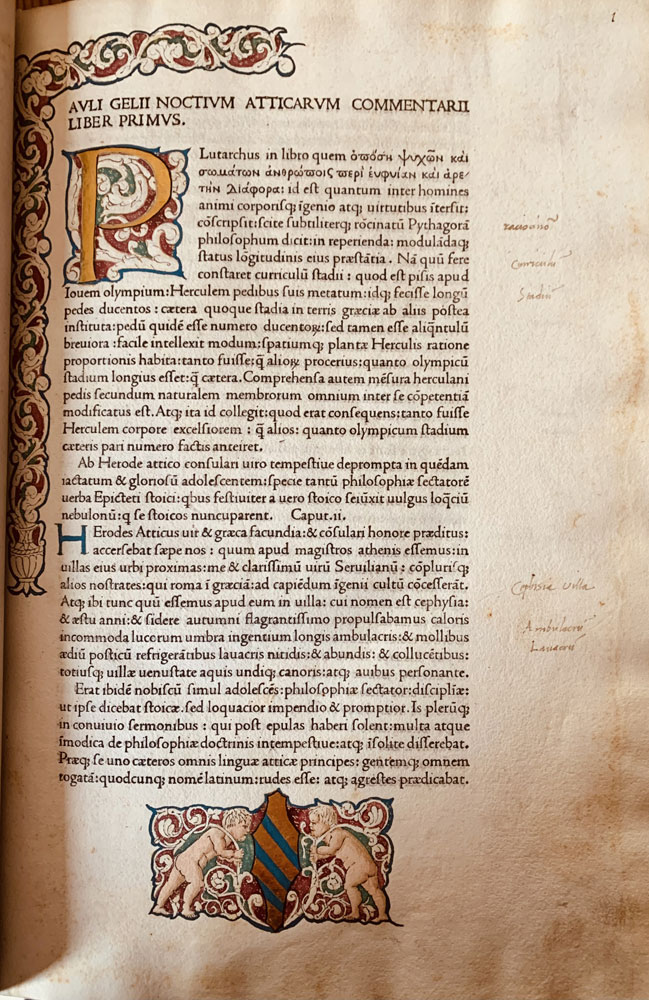 1
AVLI GELII NOCTIVM ATTICARVM COMMENTARII
LIBER PRIMVS.
PLutarchus in libro quem ὁπόση ψυχῶν καὶ
σωμάτων ἀνθρώποις περὶ ευφυίαν καὶ ἀρε-
τὴν διάφορα: id est quantum inter homines
animi corporisq; īgenio atq; uirtutibus ītersit:
cōscripsit: scite subtiliterq; rōcinatū Pythagorā
philosophum dicit: in reperienda: modulādaq;
status lōgitudinis eius præstātia. Nā quū fere
constaret curriculū stadii: quod est pisis apud
Iouem olympium: Herculem pedibus suis metatum: idq; fecisse longū
pedes ducentos: cætera quoque stadia in terris græciæ ab aliis postea
instituta: pedū quidē esse numero ducentoꝝ: sed tamen esse aliq̄ntulū
breuiora: facile intellexit modum: spatiumq; plantæ Herculis ratione
proportionis habita: tanto fuisse: q̄ alioꝝ procerius: quanto olympicū
stadium longius esset: q̄ cætera. Comprehensa autem mēsura herculani
pedis secundum naturalem membrorum omnium inter se cōpetentiā
modificatus est. Atq; ita id collegit: quod erat consequens: tanto fuisse
Herculem corpore excelsiorem: q̄ alios: quanto olympicum stadium
cæteris pari numero factis anteiret.
Ab Herode attico consulari uiro tempestiue deprompta in quēdam
iactatum & gloriosū adolescentem: specie tantū philosophiæ sectatorē
uerba Epicteti stoici: qbus festiuiter a uero stoico seiūxit uulgus loq̄ciū
nebulonū: q se stoicos nuncuparent. Caput.ii.
HErodes Atticus uir & græca facundia: & cōsulari honore præditus:
accersebat sæpe nos: quum apud magistros athenis essemus: in
uillas eius urbi proximas: me & clarissimū uirū Seruilianū: cōplurisq;
alios nostrates: qui roma ī græciā: ad capiēdum īgenii cultū cōcesserāt.
Atq; ibi tunc quū essemus apud eum in uilla: cui nomen est cephysia:
& æstu anni: & sidere autumni flagrantissimo propulsabamus caloris
incommoda lucorum umbra ingentium longis ambulacris: & mollibus
ædiū posticū refrigerātibus lauacris nitidis: & abundis: & collucētibus:
totiusq; uillæ uenustate aquis undiq; canoris: atq; auibus personante.
Erat ibidē nobiscū simul adolescēs: philosophiæ sectator: discipliæ:
ut ipse dicebat stoicæ. sed loquacior impendio & promptior. Is plerūq;
in conuiuio sermonibus: qui post epulas haberi solent: multa atque
īmodica de philosophiæ doctrinis intempestiue: atq; īsolite disserebat.
Præq; se uno cæteros omnis linguæ atticæ principes: gentemq; omnem
togatā: quodcunq; nomē latinum: rudes esse: atq; agrestes prædicabat.
Curriculū
Stadiū
Cephisia uilla
Ambulacrū
Lauacrū